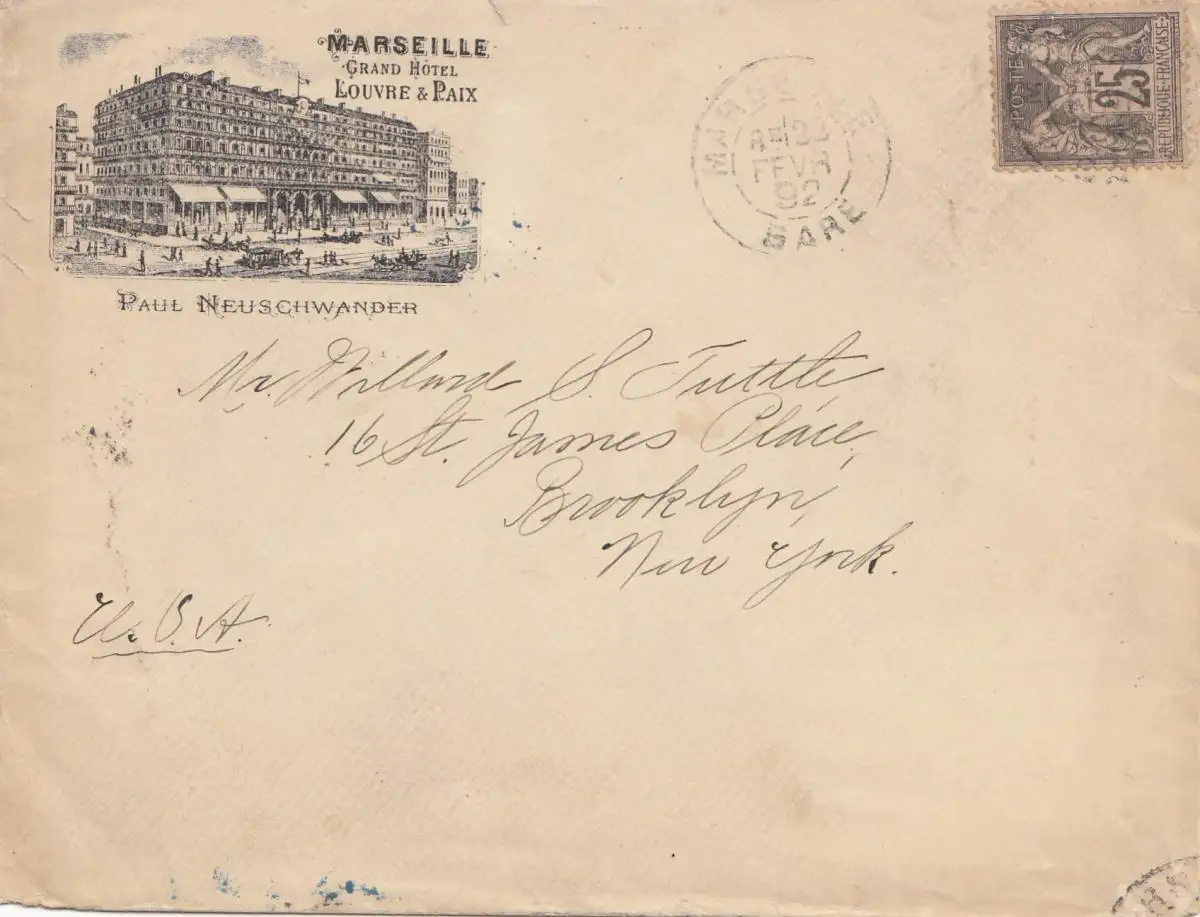 MARSEILLE
GRAND HÔTEL
LOUVRE & PAIX
PAUL NEUSCHWANDER
MARSEILLE
FEVR
92
GARE
POSTES
25
REPUBLIQUE-FRANÇAISE
Mr. Willard S. Tuttle,
16 St. James Place,
Brooklyn,
New York.
U.S.A.